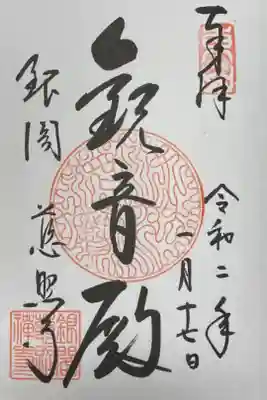 奉拝
令和二年
一月十七日
觀音殿
銀閣 慈照寺